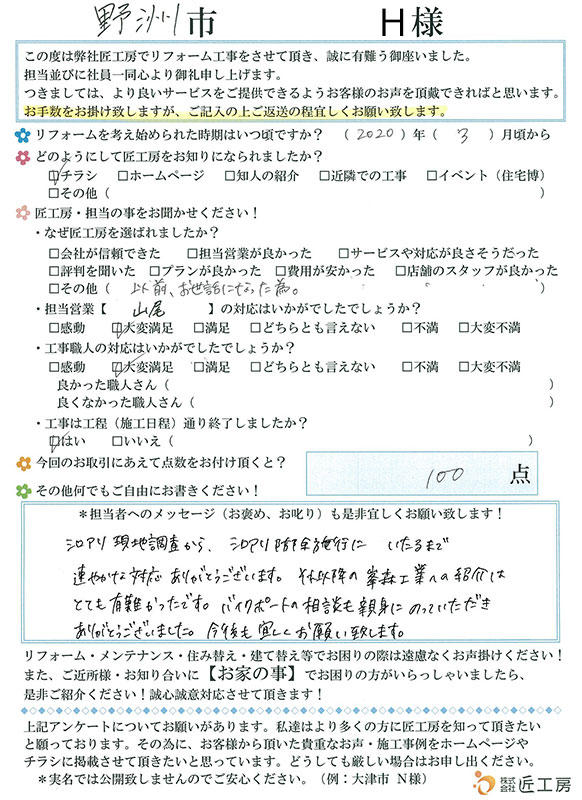 野洲市 H様
この度は弊社匠工房でリフォーム工事をさせて頂き、誠に有難う御座いました。
担当並びに社員一同心より御礼申し上げます。
つきましては、より良いサービスをご提供できるようお客様のお声を頂戴できればと思います。
お手数をお掛け致しますが、ご記入の上ご返送の程宜しくお願い致します。
リフォームを考え始められた時期はいつ頃ですか？ （2020）年（3）月頃から
どのようにして匠工房をお知りになられましたか？
☑チラシ □ホームページ □知人の紹介 □近隣での工事 □イベント（住宅博）
□その他（ ）
匠工房・担当の事をお聞かせください！
・なぜ匠工房を選ばれましたか？
□会社が信頼できた □担当営業が良かった □サービスや対応が良さそうだった
□評判を聞いた □プランが良かった □費用が安かった □店舗のスタッフが良かった
□その他（ 以前、お世話になった為。 ）
・担当営業【 山尾 】の対応はいかがでしたでしょうか？
□感動 ☑大変満足 □満足 □どちらとも言えない □不満 □大変不満
・工事職人の対応はいかがでしたでしょうか？
□感動 ☑大変満足 □満足 □どちらとも言えない □不満 □大変不満
良かった職人さん（ ）
良くなかった職人さん（ ）
・工事は工程（施工日程）通り終了しましたか？
☑はい □いいえ（ ）
今回のお取引にあえて点数をお付け頂くと？ 100 点
その他何でもご自由にお書きください！
＊担当者へのメッセージ（お褒め、お叱り）も是非宜しくお願い致します！
シロアリ現地調査から、シロアリ防除施行にいたるまで
速やかな対応ありがとうございます。それ以降の峯森工業への紹介は
とても有難かったです。バイクポートの相談も親身にのっていただき
ありがとうございました。今後も宜しくお願い致します。
リフォーム・メンテナンス・住み替え・建て替え等でお困りの際は遠慮なくお声掛けください！
また、ご近所様・お知り合いに【お家の事】でお困りの方がいらっしゃいましたら、
是非ご紹介ください！誠心誠意対応させて頂きます！
上記アンケートについてお願いがあります。私達はより多くの方に匠工房を知って頂きたい
と願っております。その為に、お客様から頂いた貴重なお声・施工事例をホームページや
チラシに掲載させて頂きたいと思っています。どうしても厳しい場合はお申し出ください。
＊実名では公開致しませんのでご安心ください。（例：大津市 N様）
株式会社 匠工房